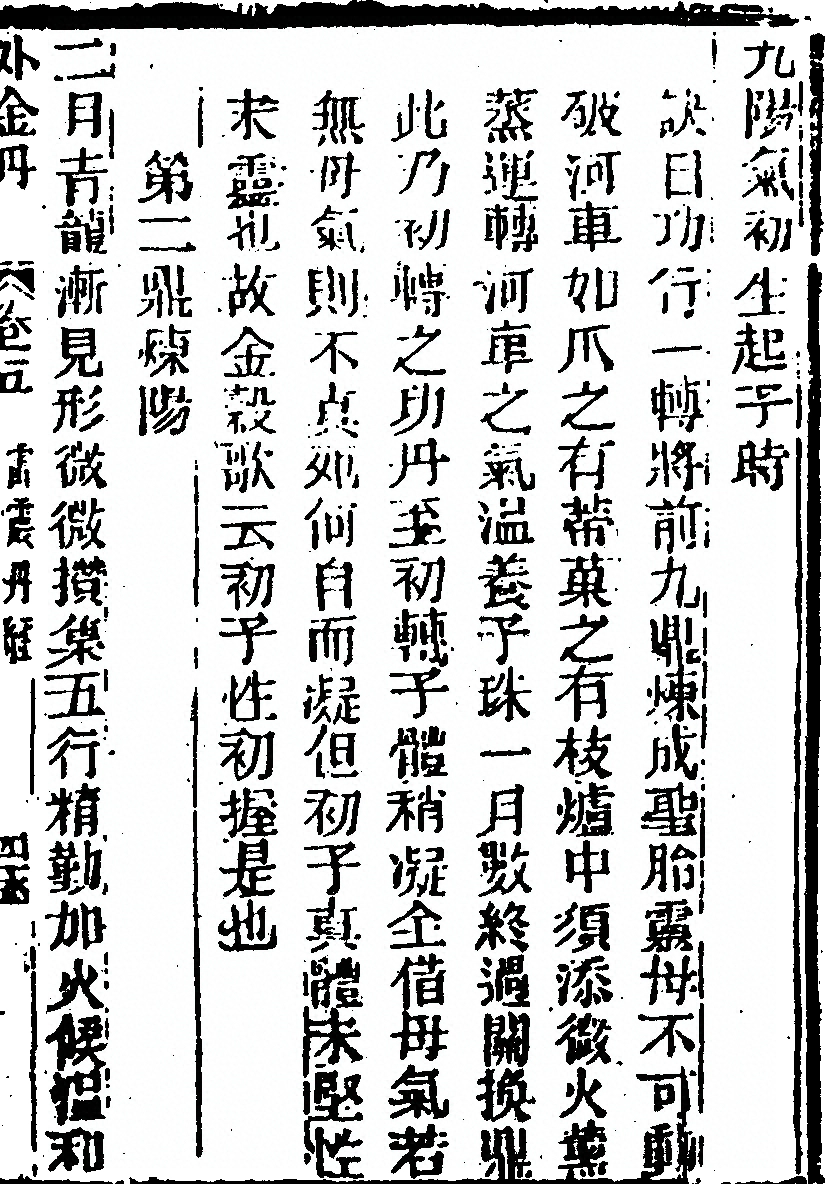 九陽氣初生起子時
訣曰功行一轉將前九鼎煉成聖胎靈母不可動
破河車如爪之有蒂菓之有枝爐中須添微火薰
蒸運轉河車之氣溫養子珠一月數終過關換鼎
此乃初轉之功丹至初轉子體稍凝全借母氣若
無母氣則不真如何自而凝但初子真體未堅性
未靈也故金穀歌云初子性初握是也
第二鼎煉陽
二月青龍漸見形微微攢簇五行精勤加火候溫和
外金丹 卷五